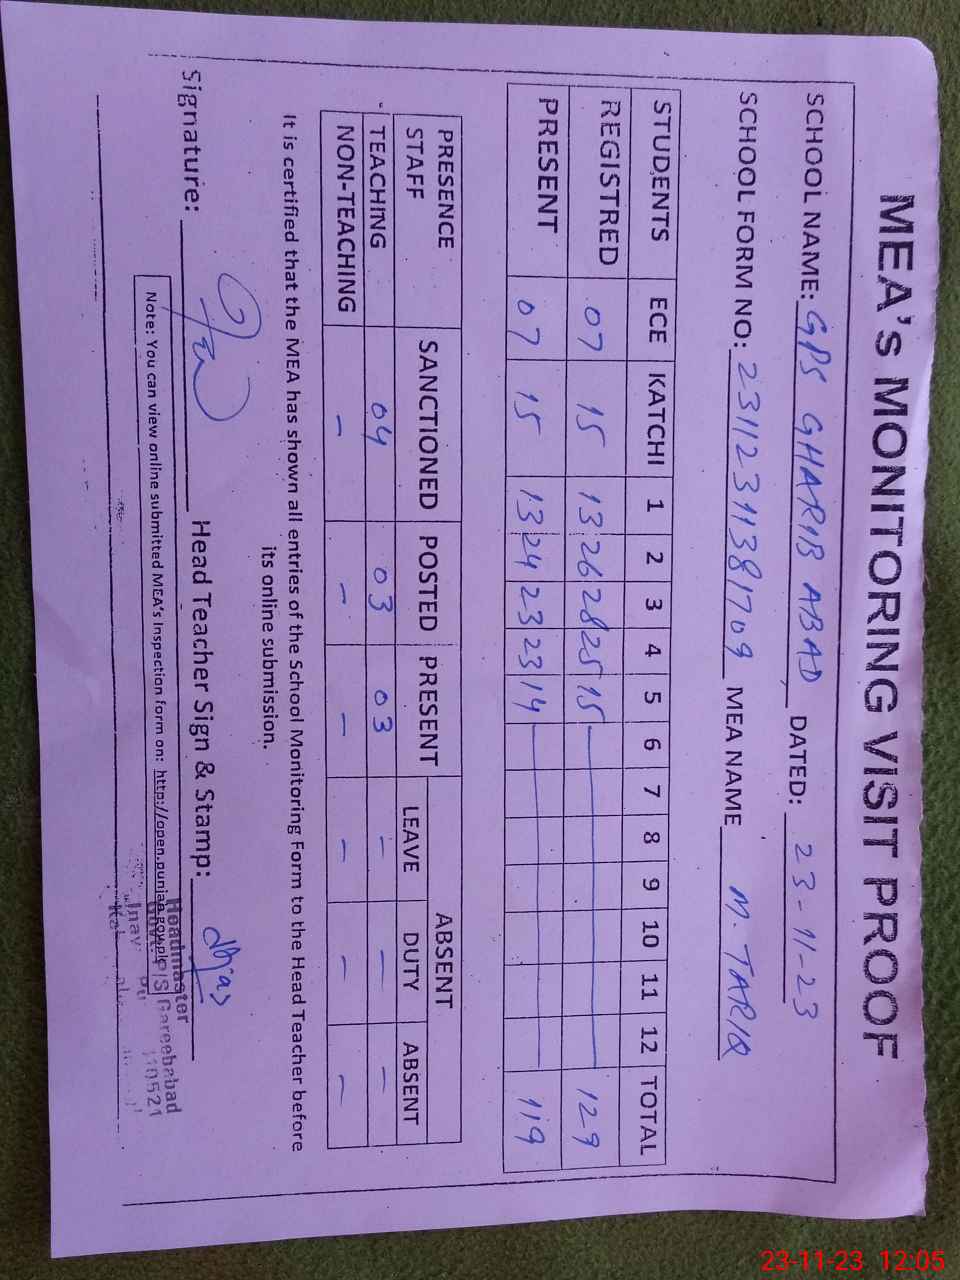 MEA's MONITORING VISIT PROOF
SCHOOL NAME: GPS GHARIB ABAD DATED: 23-11-23
SCHOOL FORM NO: 23112311381709 MEA NAME M. TARIQ
STUDENTS ECE KATCHI 1 2 3 4 5 6 7 8 9 10 11 12 TOTAL
REGISTRED 07 15 13 26 28 25 15 129
PRESENT 07 15 13 24 23 23 14 119
PRESENCE STAFF SANCTIONED POSTED PRESENT ABSENT
LEAVE DUTY ABSENT
TEACHING 04 03 03 - - -
NON-TEACHING - - - - - -
It is certified that the MEA has shown all entries of the School Monitoring Form to the Head Teacher before
its online submission.
Signature: Head Teacher Sign & Stamp:
Headmaster
Gareebabad
Note: You can view online submitted MEA's Inspection form on: http://open.punjab.gov.pk
23-11-23 12:05